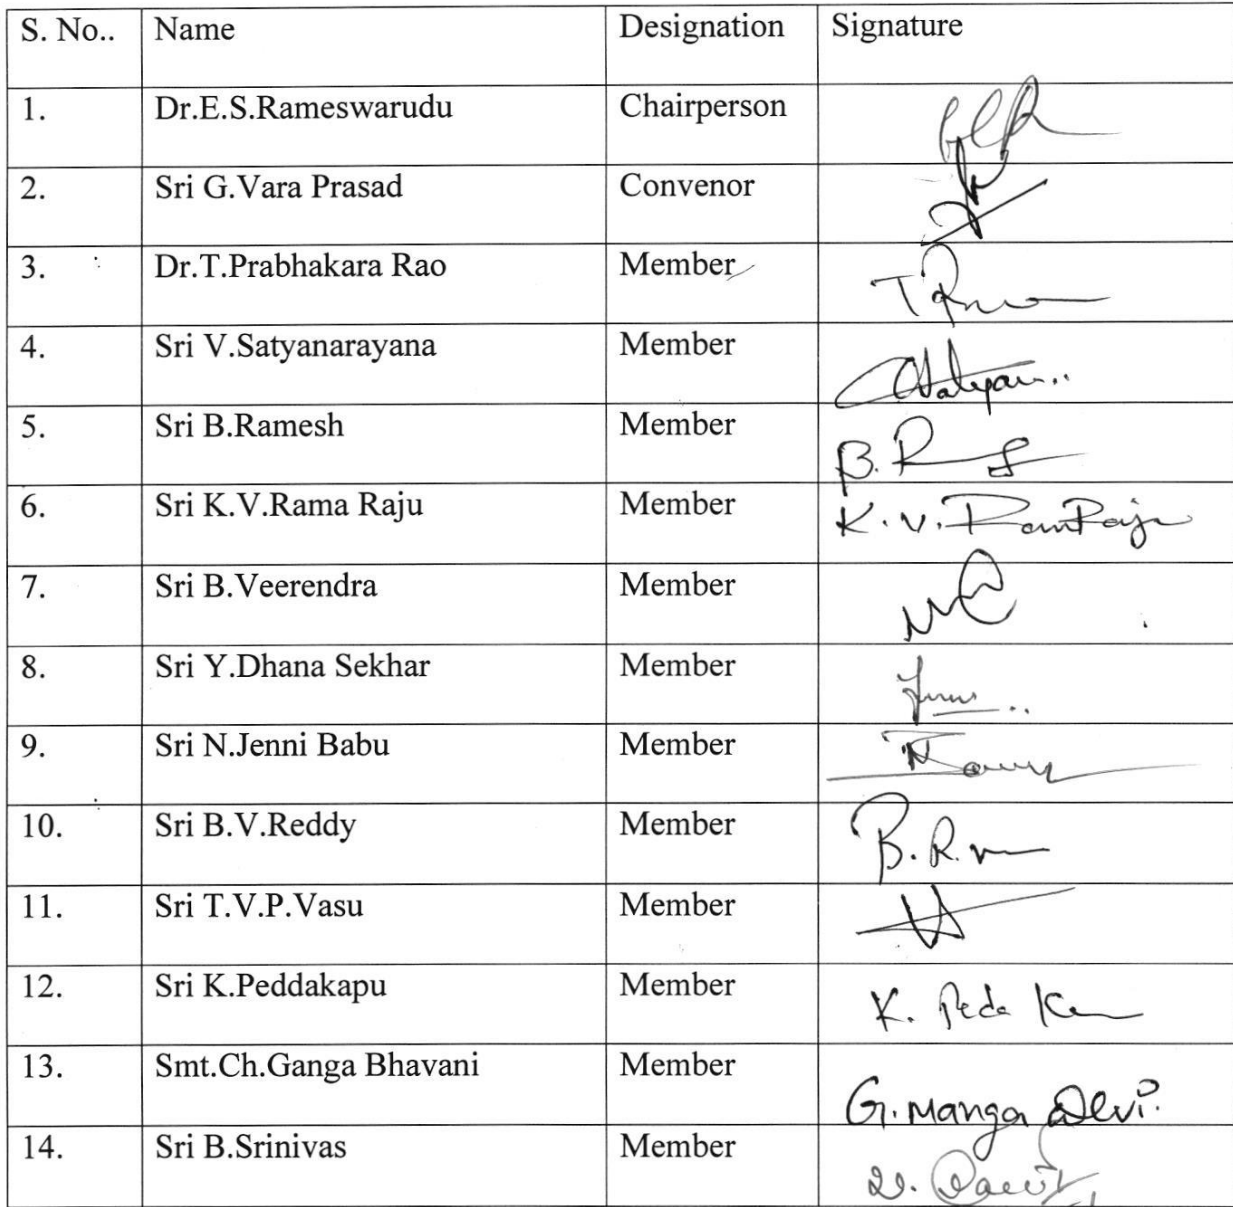 S. No.. Name Designation Signature
1. Dr.E.S.Rameswarudu Chairperson
2. Sri G.Vara Prasad Convenor
3. Dr.T.Prabhakara Rao Member
4. Sri V.Satyanarayana Member
5. Sri B.Ramesh Member B. R
6. Sri K.V.Rama Raju Member K. V. RamRaju
7. Sri B.Veerendra Member
8. Sri Y.Dhana Sekhar Member
9. Sri N.Jenni Babu Member
10. Sri B.V.Reddy Member B. R.
11. Sri T.V.P.Vasu Member
12. Sri K.Peddakapu Member K. Peda
13. Smt.Ch.Ganga Bhavani Member G. Manga Devi.
14. Sri B.Srinivas Member